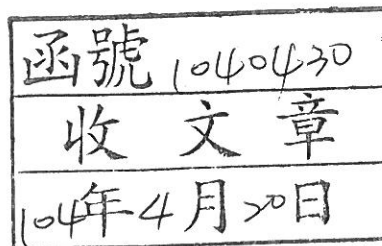 函號1040430
收文章
104年4月20日